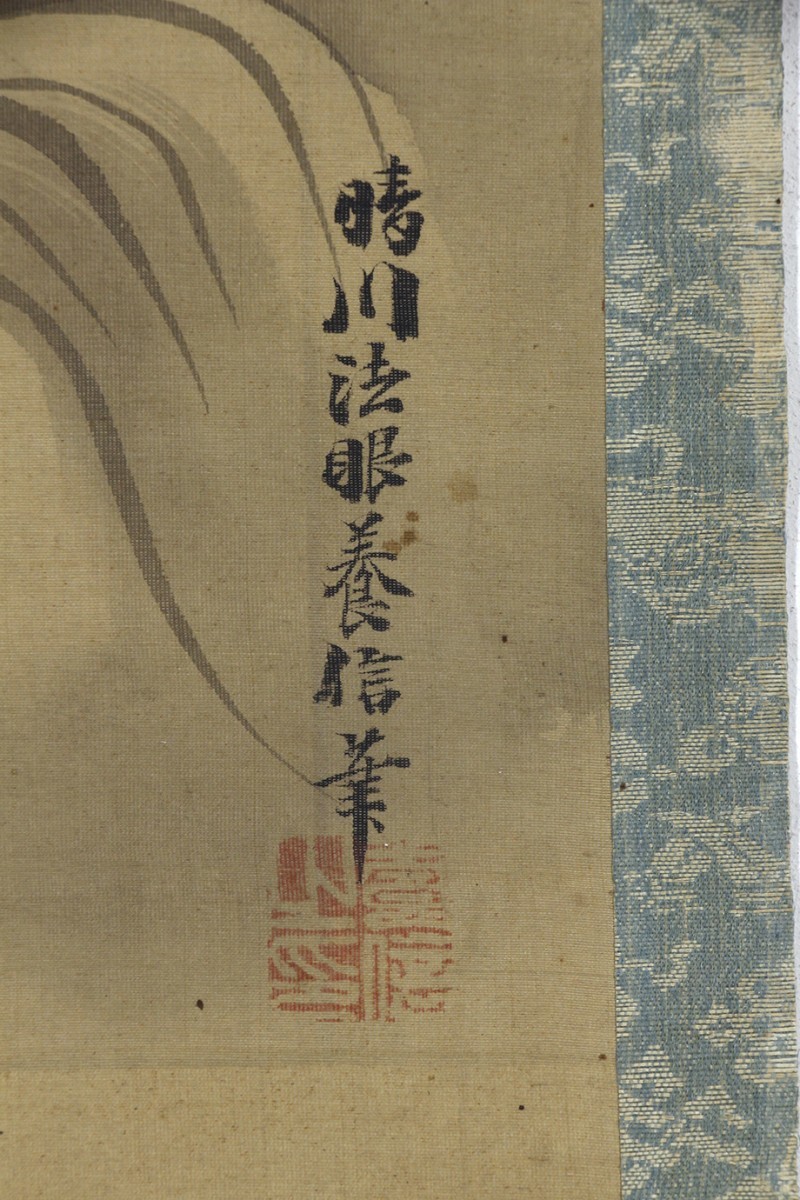 晴川法眼養信筆